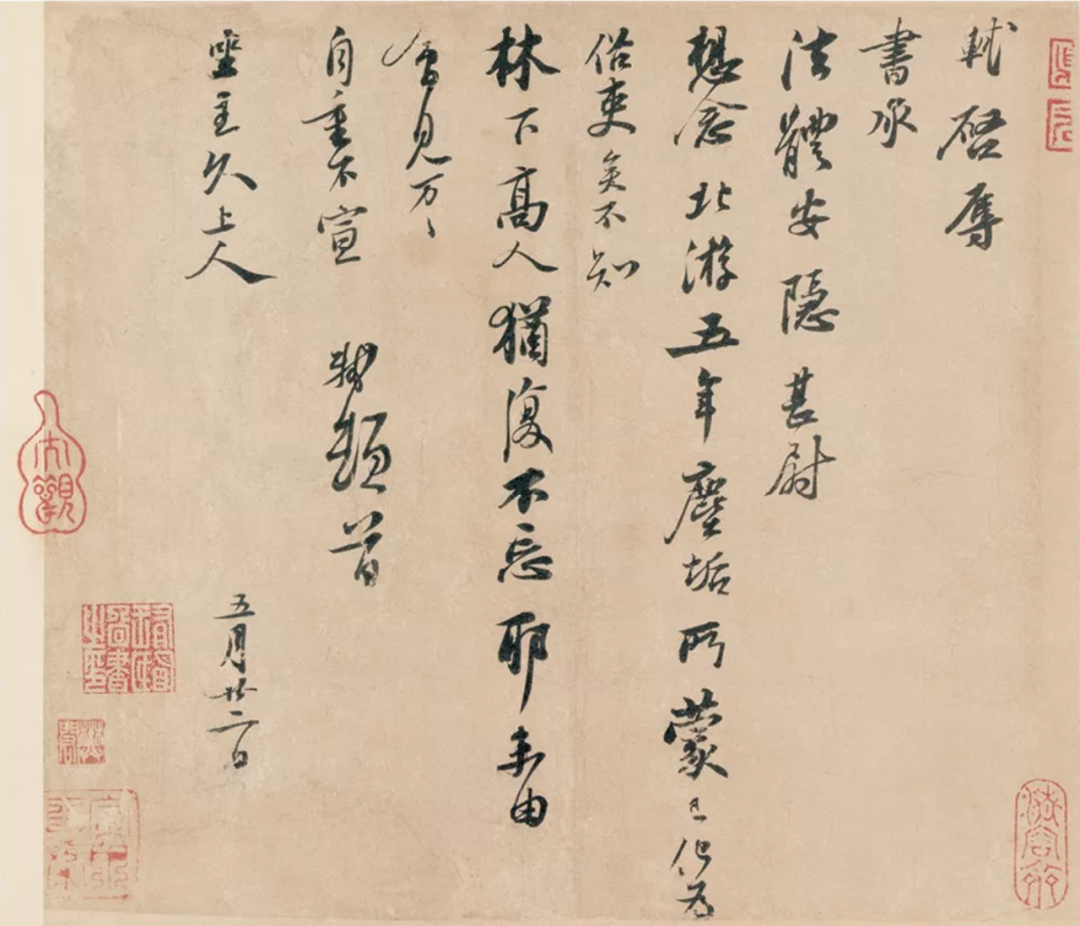 軾啓辱
書承
法體安隱甚尉
想念北游五年塵垢所蒙已化爲
俗吏矣不知
林下高人猶復不忘耶未由
會見万〻
自重不宣 軾頓首
坐主久上人
五月廿二日
大觀